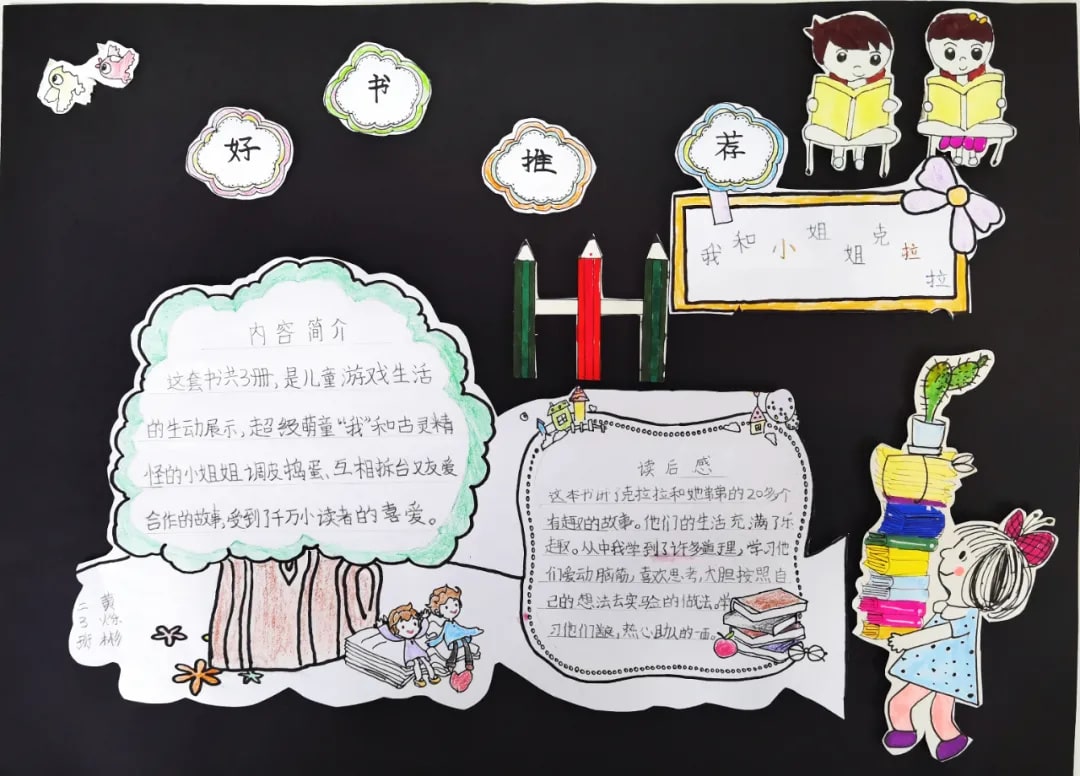 好书推荐
我和小姐姐克拉
拉
内容简介
这套书共3册,是儿童游戏生活
的生动展示,超级萌童“我”和古灵精
怪的小姐姐调皮捣蛋、互相拆台又友爱
合作的故事,受到了千万小读者的喜爱。
读后感
这本书讲了克拉拉和她弟弟的20多个
有趣的故事。他们的生活充满了乐
趣。从中我学到了许多道理,学习他
们爱动脑筋,喜欢思考,大胆按照自
己的想法去实验的做法。学
习他们善良,热心助人的一面。
二3班
黄烁彬